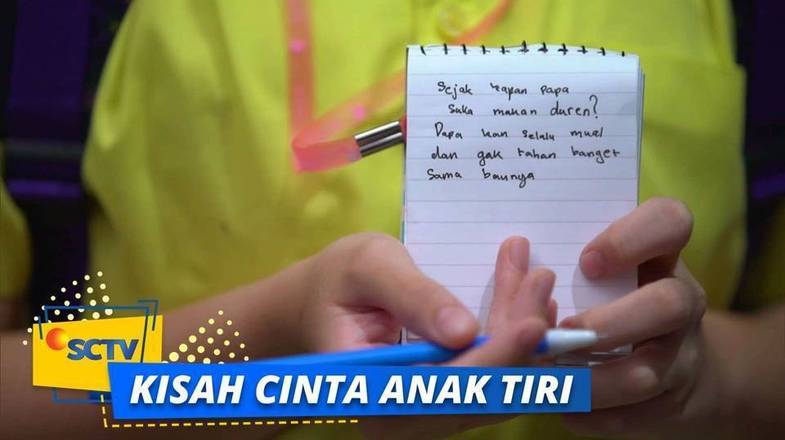 Sejak kapan papa
suka makan duren?
Papa kan selalu mual
dan gak tahan banget
sama baunya
SCTV
KISAH CINTA ANAK TIRI